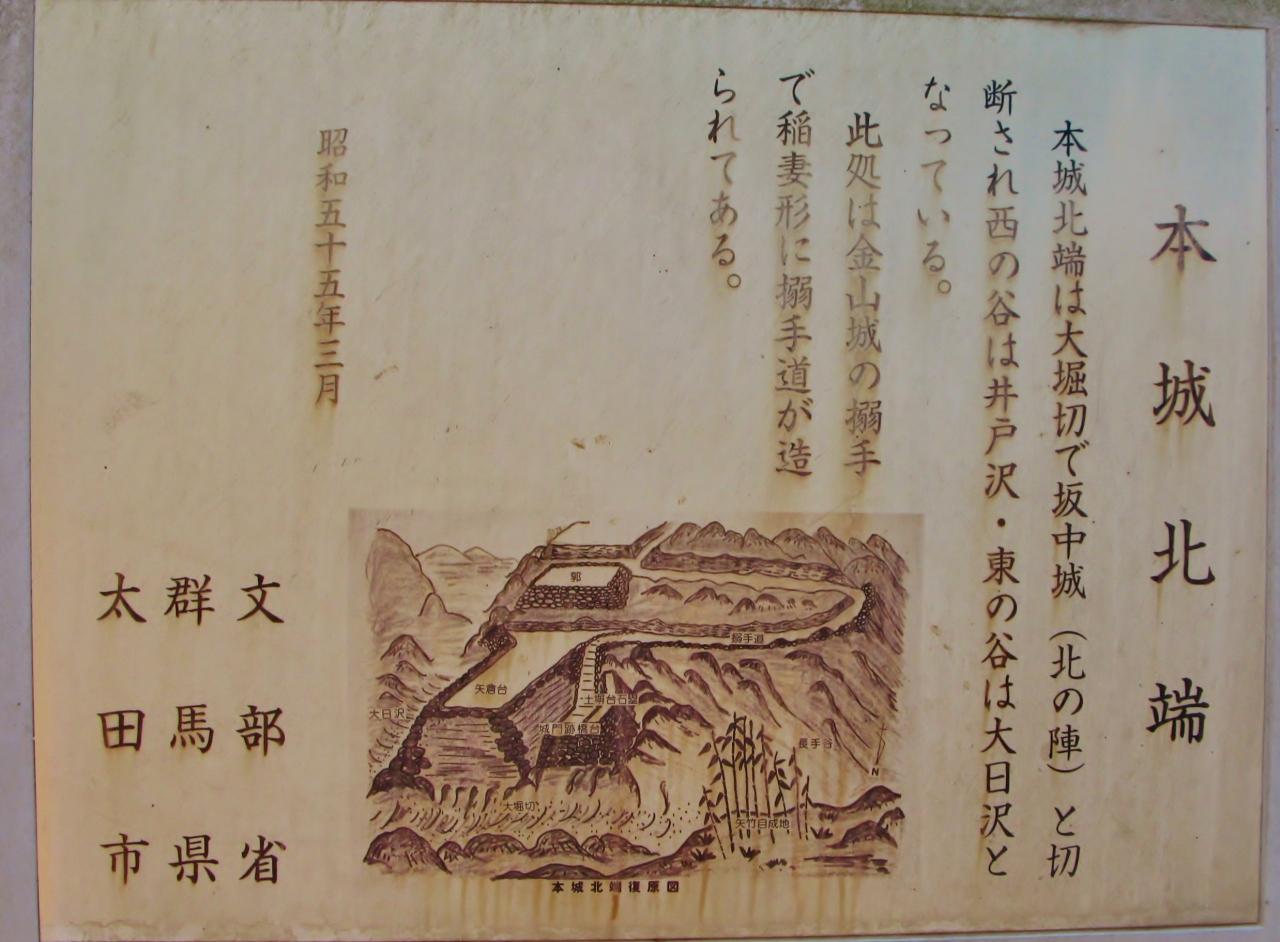 本城北端
本城北端は大堀切で坂中城（北の陣）と切
断され西の谷は井戸沢・東の谷は大日沢と
なっている。
此処は金山城の搦手
で稲妻形に搦手道が造
られてある。
昭和五十五年三月
文部省
群馬県
太田市
郭
搦手道
矢倉台
大日沢
城門跡橋台
長手谷
N
大堀切
矢竹自成地
本城北端復原図